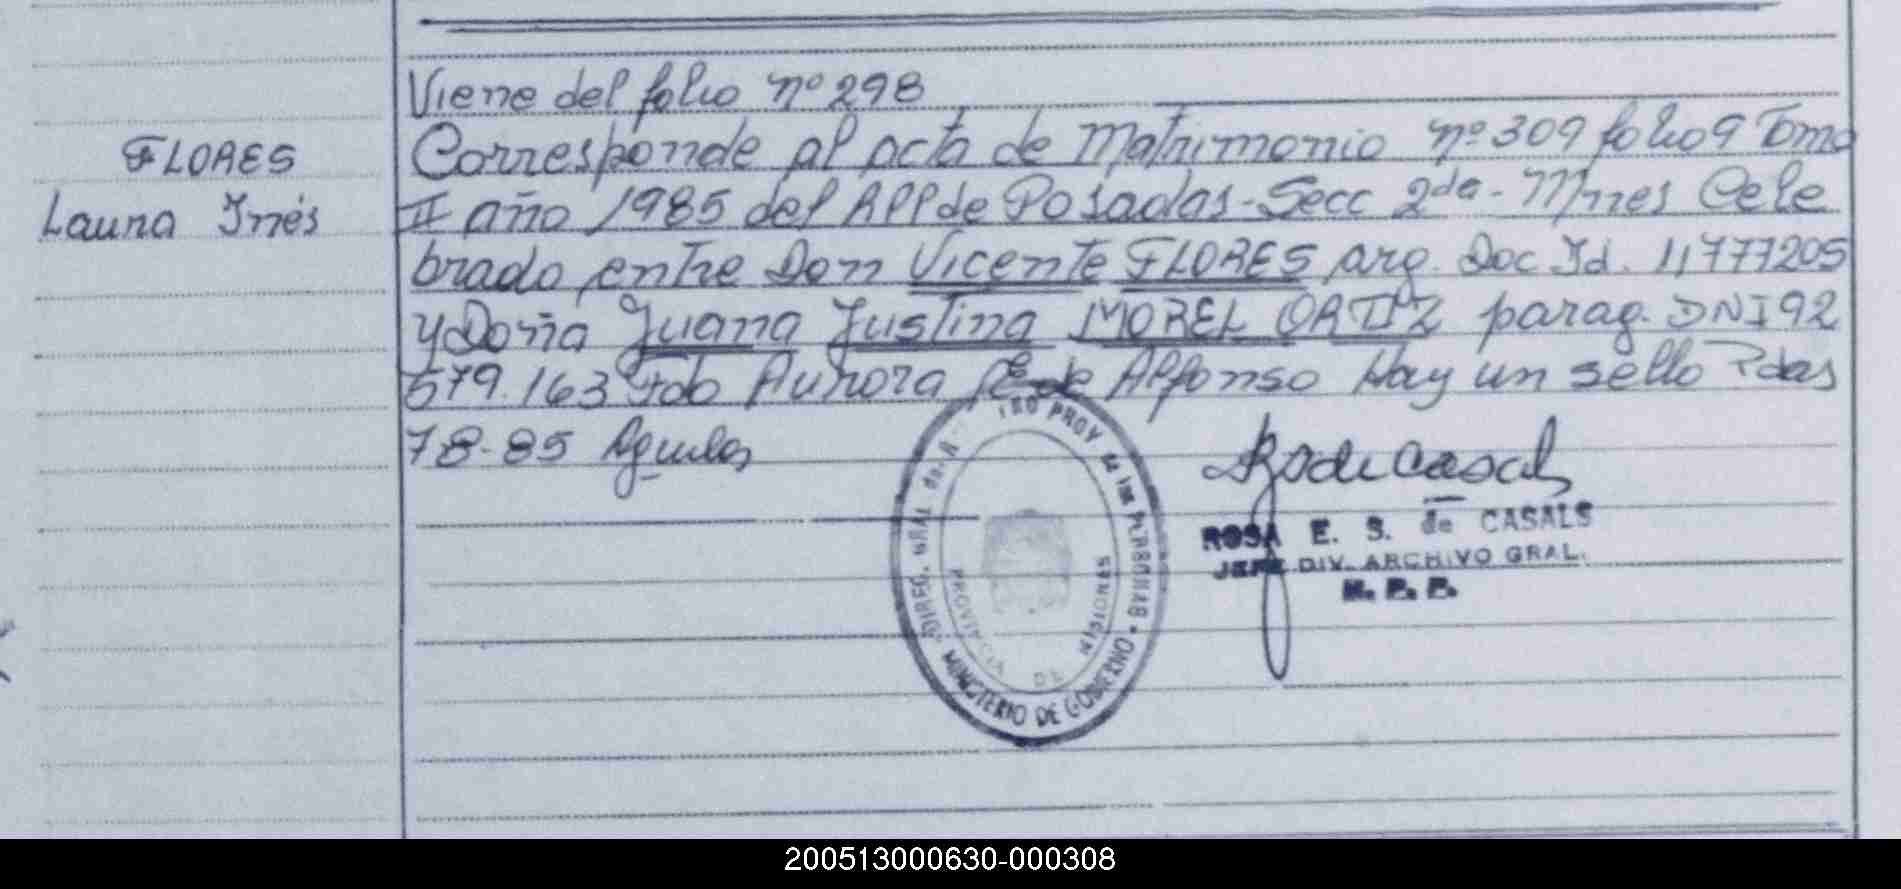 Viene del folio nº 298
FLORES
Laura Inés
Corresponde al acta de Matrimonio nº 309 folio 9 Tomo
II año 1985 del RPP de Posadas-Secc 2da - Mnes Cele
brado entre Don Vicente FLORES arg. Doc Id. 11777205
y Doña Juana Justina MOREL ORTIZ parag. DNI 92
579.163 Fdo Aurora de Alfonso Hay un sello Pdas
7-8-85 Aguilar
ROSA E. S. de CASALS
JEFE DIV. ARCHIVO GRAL.
R. P. P.
DIREC. GRAL del PROV de las PERSONAS
MINISTERIO DE GOBIERNO
PROVINCIA DE MISIONES
200513000630-000308